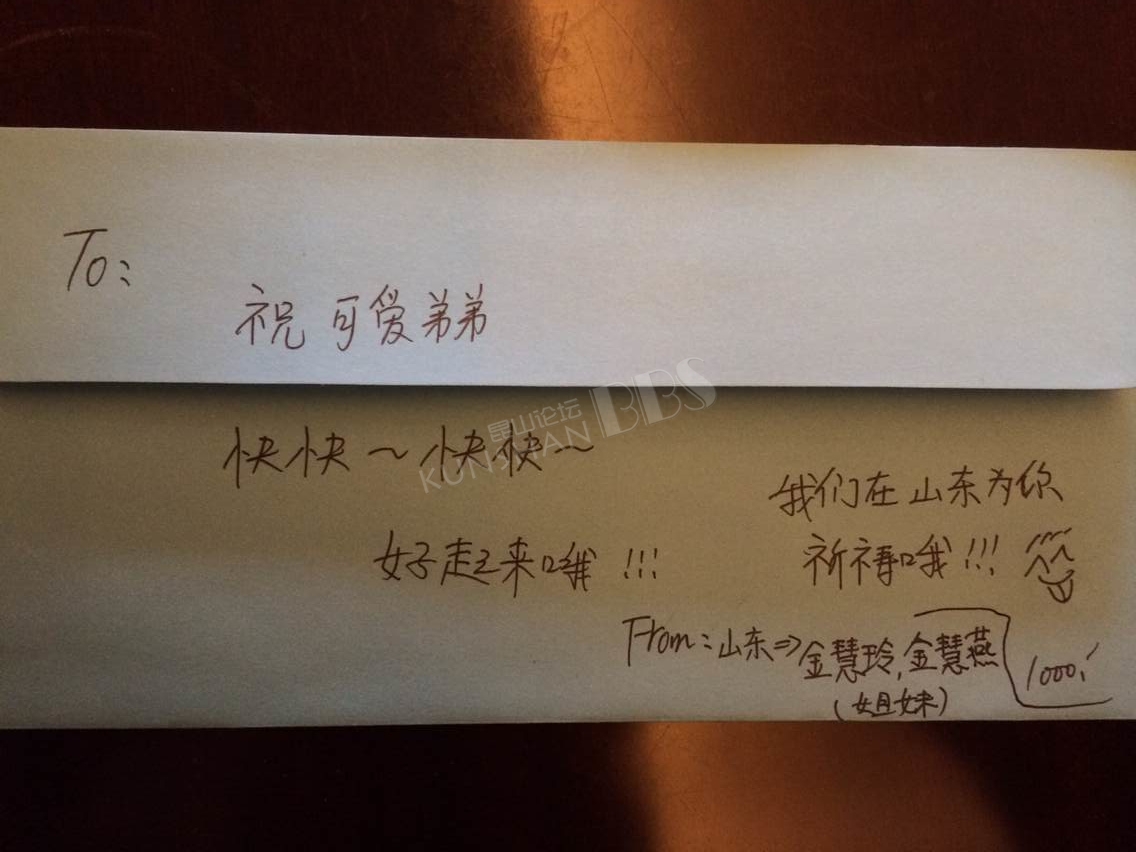 To:
祝可爱弟弟
昆山论坛
KUNSHAN BBS
快快~快快~
好起来哦!!!
我们在山东为你
祈祷哦!!!
From:山东⇒金慧玲,金慧燕
(姐妹)
1000,